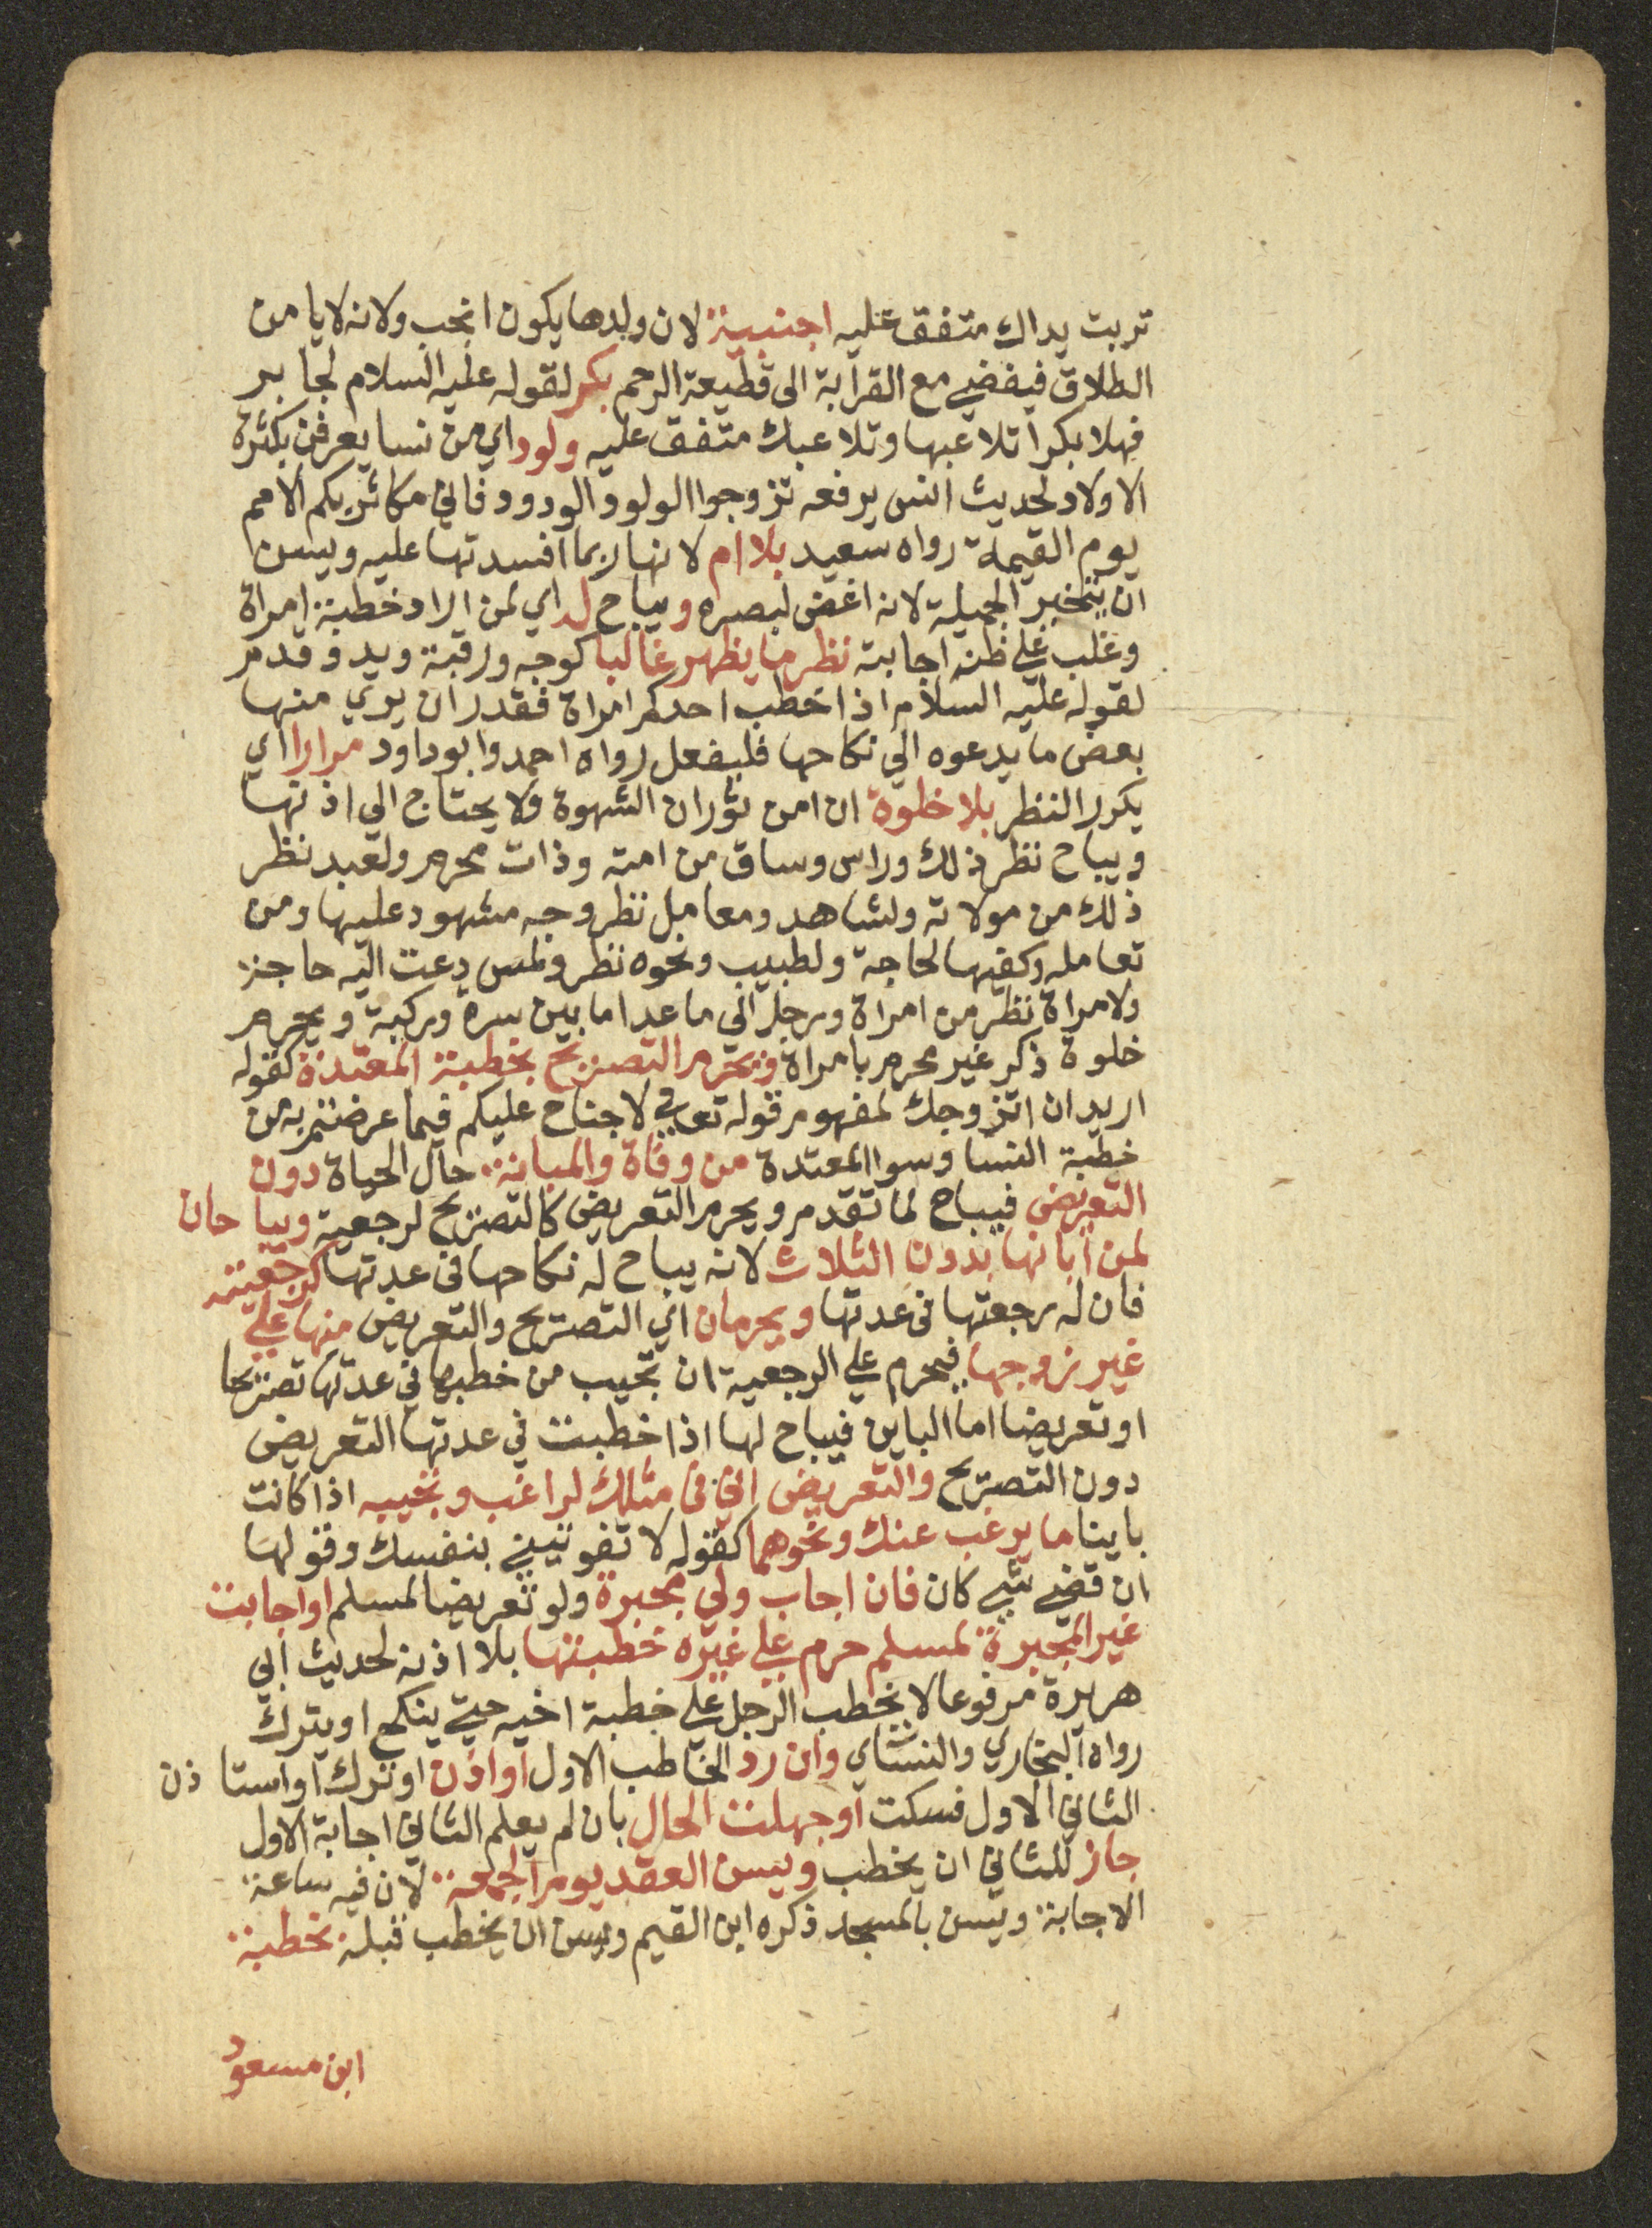 تربت يداك متفق عليه اجنبية لان ولدها يكون انجب ولانه لا يامن
الطلاق فيفضي مع القرابة الى قطيعة الرحم بكر لقوله عليه السلام لجابر
فهلا بكرا تلاعبها وتلاعبك متفق عليه ولود اي من نسا يعرفن بكثرة
الاولاد لحديث انس يرفعه تزوجوا الولود الودود فاني مكاثر بكم الامم
يوم القيمة رواه سعيد بلا ام لانها ربما افسدتها عليه ويسن
ان يتخير الجميلة لانه اغض لبصره ويباح له اي لمن اراد خطبة امراة
وغلب علي ظنه اجابته نظر ما يظهر غالبا كوجه ورقبة ويد وقدم
لقوله عليه السلام اذا خطب احدكم امراة فقدر ان يري منها
بعض ما يدعوه الي نكاحها فليفعل رواه احمد وابو داود مرارا اي
يكرر النظر بلا خلوة ان امن ثوران الشهوة ولا يحتاج الي اذنها
ويباح نظر ذلك وراس وساق من امته وذات محرم ولعبد نظر
ذلك من مولاته ولشاهد ومعامل نظر وجه مشهود عليها ومن
تعامله وكفيها لحاجة ولطبيب ونحوه نظر ولمس دعت اليه حاجة
ولامراة نظر من امراة ورجل الي ما عدا ما بين سرة وركبة ويحرم
خلوة ذكر غير محرم بامراة ويحرم التصريح بخطبة المعتدة كقوله
اريد ان اتزوجك لمفهوم قوله تعالي لا جناح عليكم فيما عرضتم به من
خطبة النسا وسوا المعتدة من وفاة والمبانة حال الحياة دون
التعريض فيباح لما تقدم ويحرم التعريض كالتصريح لرجعية ويباحان
لمن ابانها بدون الثلاث لانه يباح له نكاحها في عدتها كرجعيته
فان له رجعتها في عدتها ويحرمان اي التصريح والتعريض منها علي
غير زوجها فيحرم علي الرجعية ان تجيب من خطبها في عدتها تصريحا
او تعريضا اما الباين فيباح لها اذا خطبت في عدتها التعريض
دون التصريح والتعريض اني في مثلك لراغب وتجيبه اذا كانت
باينا ما يرغب عنك ونحوهما كقوله لا تفوتيني بنفسك وقولها
ان قضي شي كان فان اجاب ولي مجبرة ولو تعريضا لمسلم او اجابت
غير المجبرة لمسلم حرم علي غيره خطبتها بلا اذنه لحديث ابي
هريرة مرفوعا لا يخطب الرجل علي خطبة اخيه حتي ينكح او يترك
رواه البخاري والنساي وان رد الخاطب الاول او اذن او ترك او استا ذن
الثاني الاول فسكت او جهلت الحال بان لم يعلم الثاني اجابة الاول
جاز للثاني ان يخطب ويسن العقد يوم الجمعة لان فيه ساعة
الاجابة ويسن بالمسجد ذكره ابن القيم ويسن ان يخطب قبله بخطبة
ابن مسعود